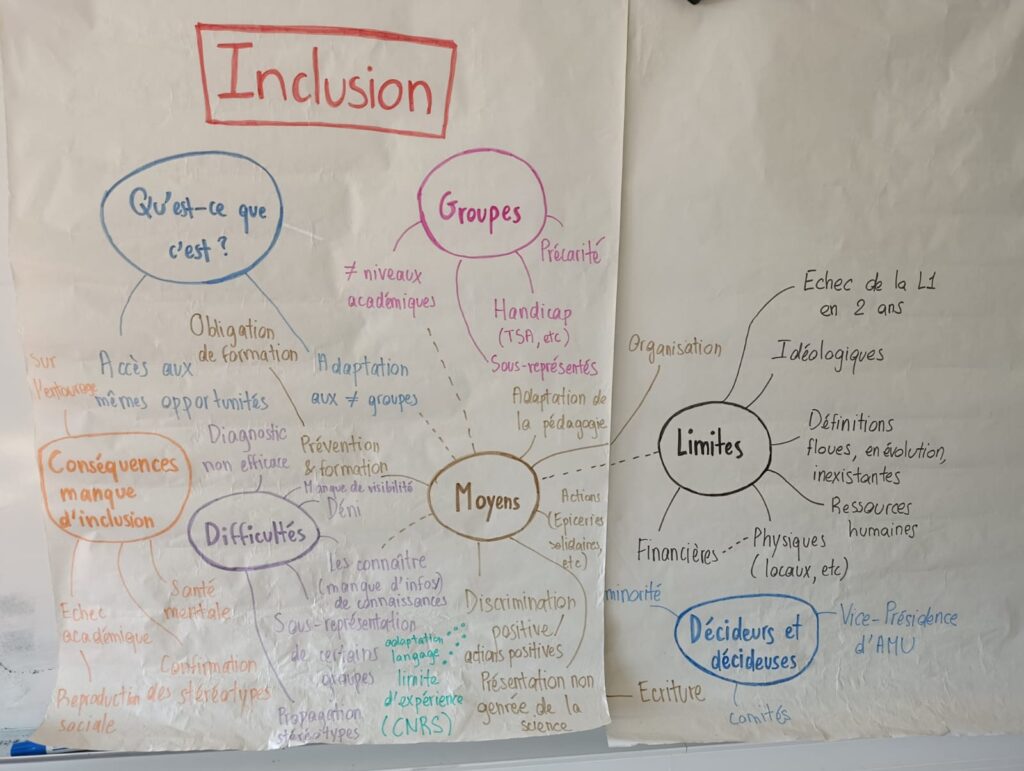 Inclusion
Qu'est-ce que
c'est ?
Accès aux
mêmes opportunités
Adaptation
aux ≠ groupes
Groupes
≠ niveaux
académiques
Précarité
Handicap
(TSA, etc)
Sous-représentés
Conséquences
manque
d'inclusion
Sur
l'entourage
Echec
académique
Reproduction
sociale
Santé
mentale
Confirmation
des stéréotypes
Difficultés
Diagnostic
non efficace
Manque de visibilité
Déni
Les connaître
(manque d'infos)
de connaissances
Sous-représentation
de certains
groupes
Propagation
stéréotypes
Moyens
Obligation
de formation
Prévention
& formation
Adaptation de
la pédagogie
Organisation
Actions
(Epiceries
solidaires,
etc)
Discrimination
positive/
actions positives
Présentation non
genrée de la
science
Ecriture
adaptation
langage
limite
d'expérience
(CNRS)
Limites
Echec de la L1
en 2 ans
Idéologiques
Définitions
floues, en évolution,
inexistantes
Ressources
humaines
Physiques
(locaux, etc)
Financières
Décideurs et
décideuses
minorité
Vice-Présidence
d'AMU
comités